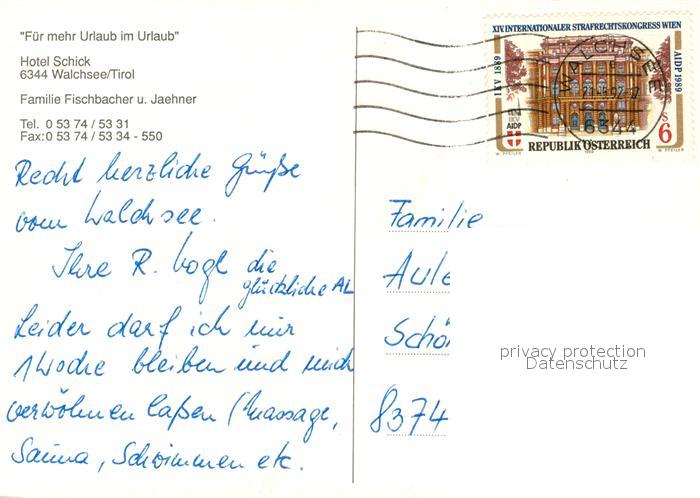 "Für mehr Urlaub im Urlaub"
Hotel Schick
6344 Walchsee/Tirol
Familie Fischbacher u. Jaehner
Tel. 0 53 74 / 53 31
Fax: 0 53 74 / 53 34 - 550
Recht herzliche Grüße
vom Walchsee.
Ihre R. Vogl die
glückliche AL
Leider darf ich nur
1 Woche bleiben und mich
verwöhnen laßen (Massage,
Sauna, Schwimmen etc.
XIV. INTERNATIONALER STRAFRECHTSKONGRESS WIEN
IKV 1889
AIDP 1989
IKV
AIDP
S 6
REPUBLIK ÖSTERREICH
W. PFEILER
WALCHSEE
6344
Familie
Aule
Schö
8374
privacy protection
Datenschutz